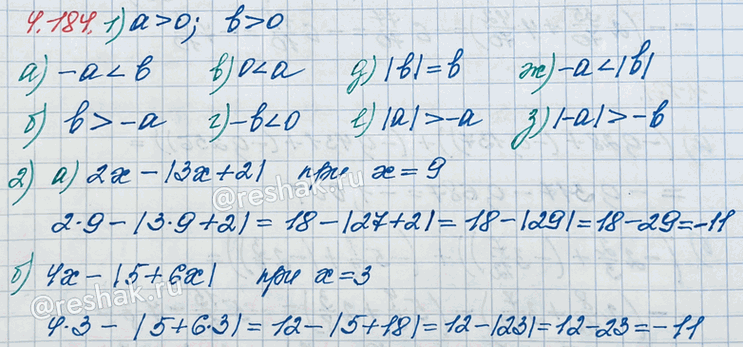 4.184. 1) a > 0; b > 0
а) -a < b в) 0 < a д) |b| = b ж) -a < |b|
б) b > -a г) -b < 0 е) |a| > -a з) |-a| > -b
2) а) 2x - |3x + 2| при x = 9
@reshak.ru
2·9 - |3·9 + 2| = 18 - |27 + 2| = 18 - |29| = 18 - 29 = -11
б) 4x - |5 + 6x| при x = 3
@reshak.ru
4·3 - |5 + 6·3| = 12 - |5 + 18| = 12 - |23| = 12 - 23 = -11